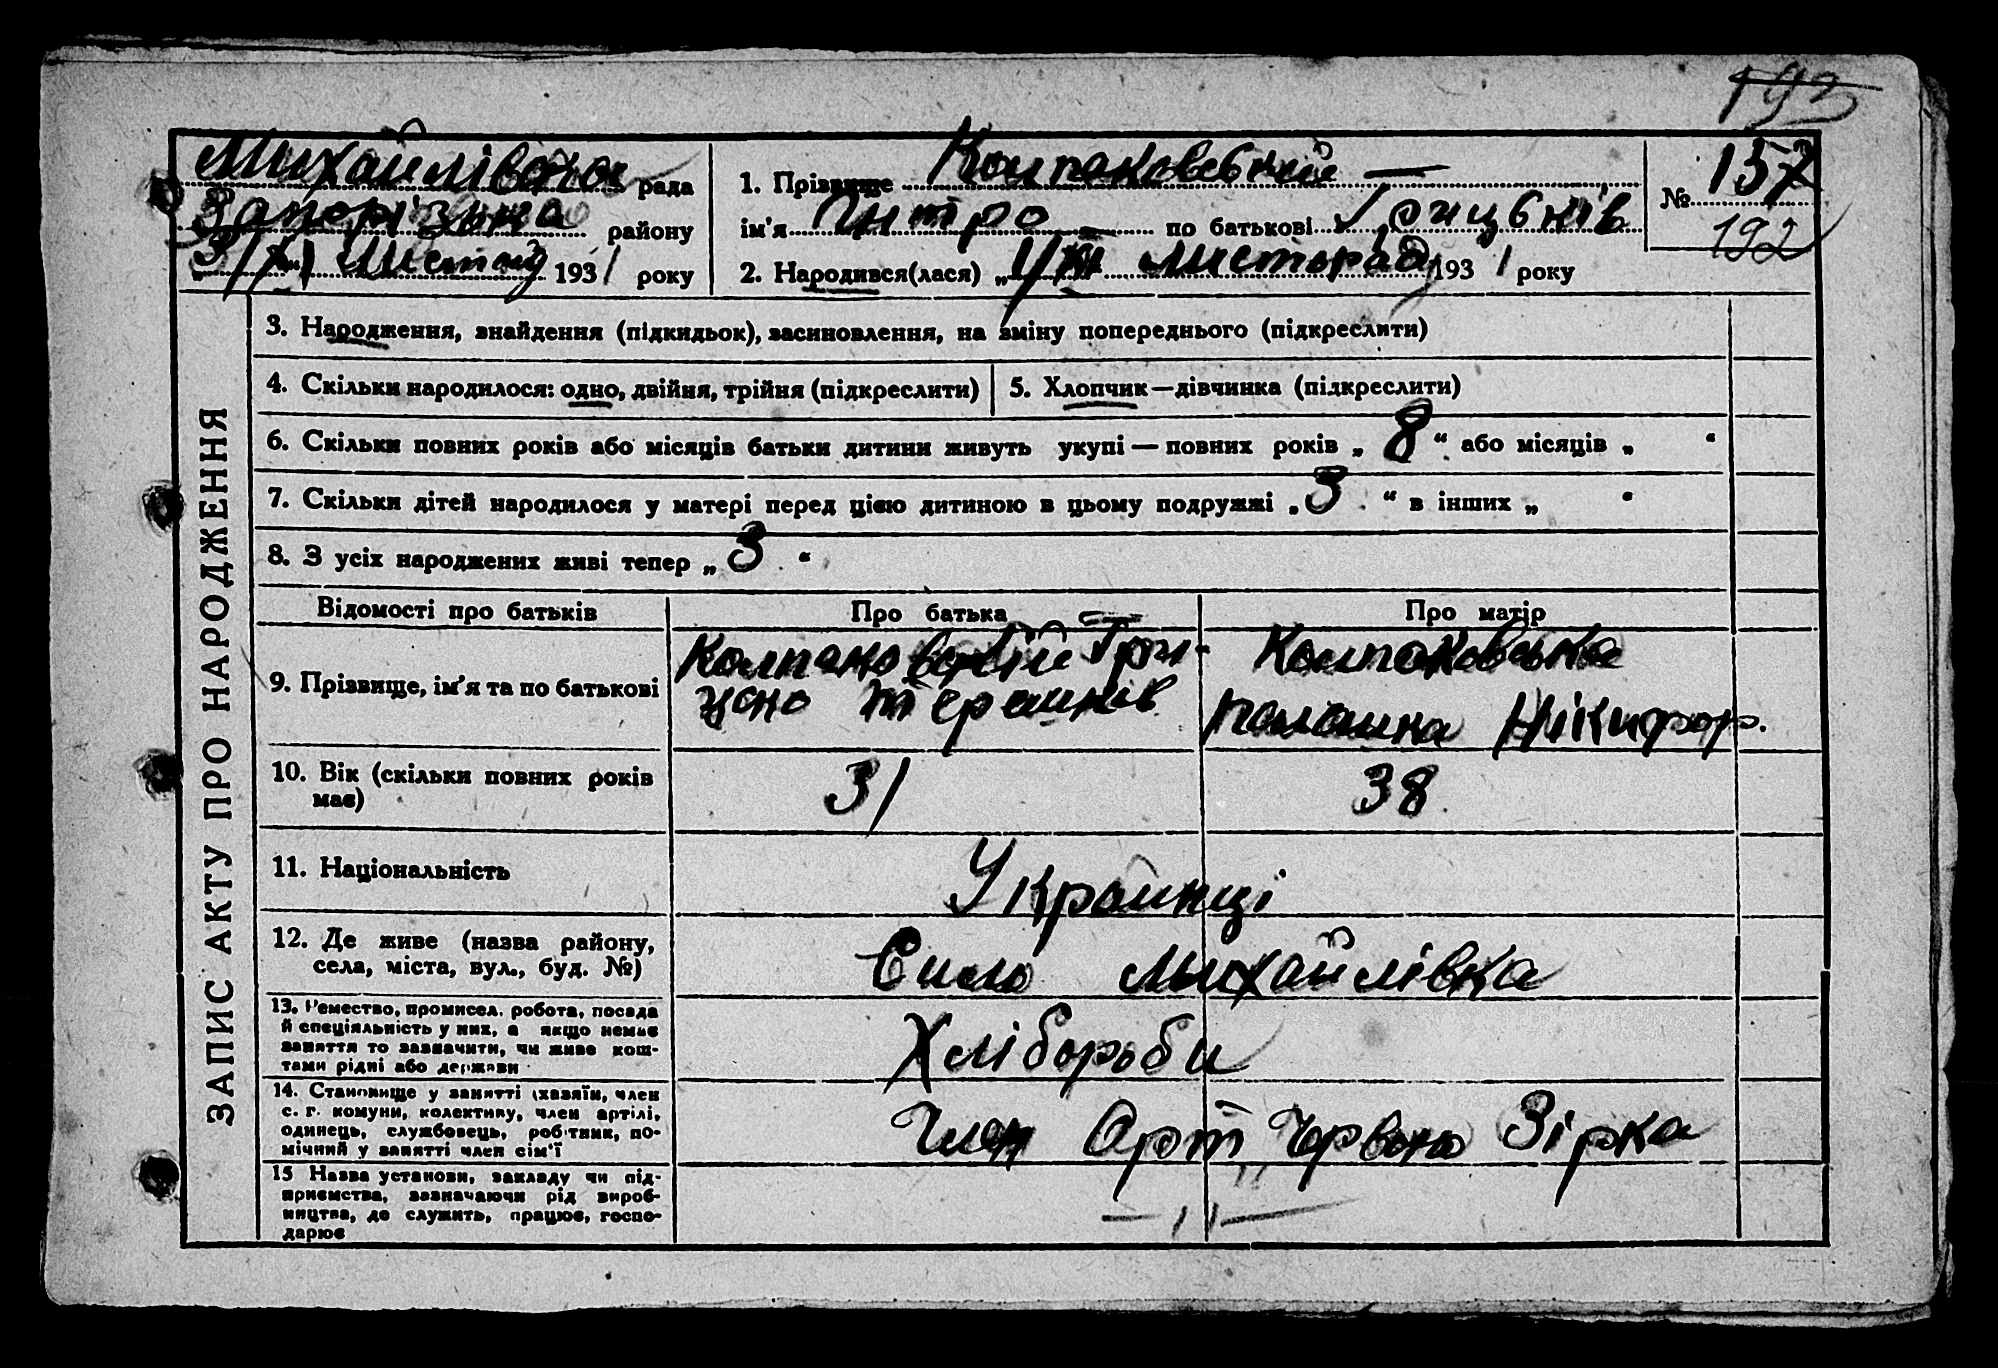 193
Михайлівська рада
Запорізька району
3/XI Листопад 1931 року
1. Прізвище Колпаковський —
ім'я Дмитро по батькові Грицьків
2. Народився(лася) „1/XI листопад 1931 року
№ 157
192
ЗАПИС АКТУ ПРО НАРОДЖЕННЯ
3. Народження, знайдення (підкидьок), засиновлення, на зміну попереднього (підкреслити)
4. Скільки народилося: одно, двійня, трійня (підкреслити)
5. Хлопчик — дівчинка (підкреслити)
6. Скільки повних років або місяців батьки дитини живуть укупі — повних років „ 8 “ або місяців „ “
7. Скільки дітей народилося у матері перед цією дитиною в цьому подружжі „ 3 “ в інших „ “
8. З усіх народжених живі тепер „ 3 “
Відомості про батьків
Про батька
Про матір
9. Прізвище, ім'я та по батькові
Колпаковський Гри-
цько
Колпаковська
Палашка Нікифор.
10. Вік (скільки повних років
має)
31
38
11. Національність
Українці
12. Де живе (назва району,
села, міста, вул., буд. №)
Село Михайлівка
13. Ремество, промисел, робота, посада
й спеціяльність у них, а якщо немає
заняття то зазначити, чи живе кош-
тами рідні або держави
Хлібороби
14. Становище у занятті (хазяїн, член
с. г. комуни, колективу, член артілі,
одинець, службовець, робітник, по-
мічний у занятті член сім'ї
Член Арт Червона Зірка
15 Назва установи, закладу чи під-
приємства, зазначаючи рід вироб-
ництва, де служить, працює, госпо-
дарює
— " —